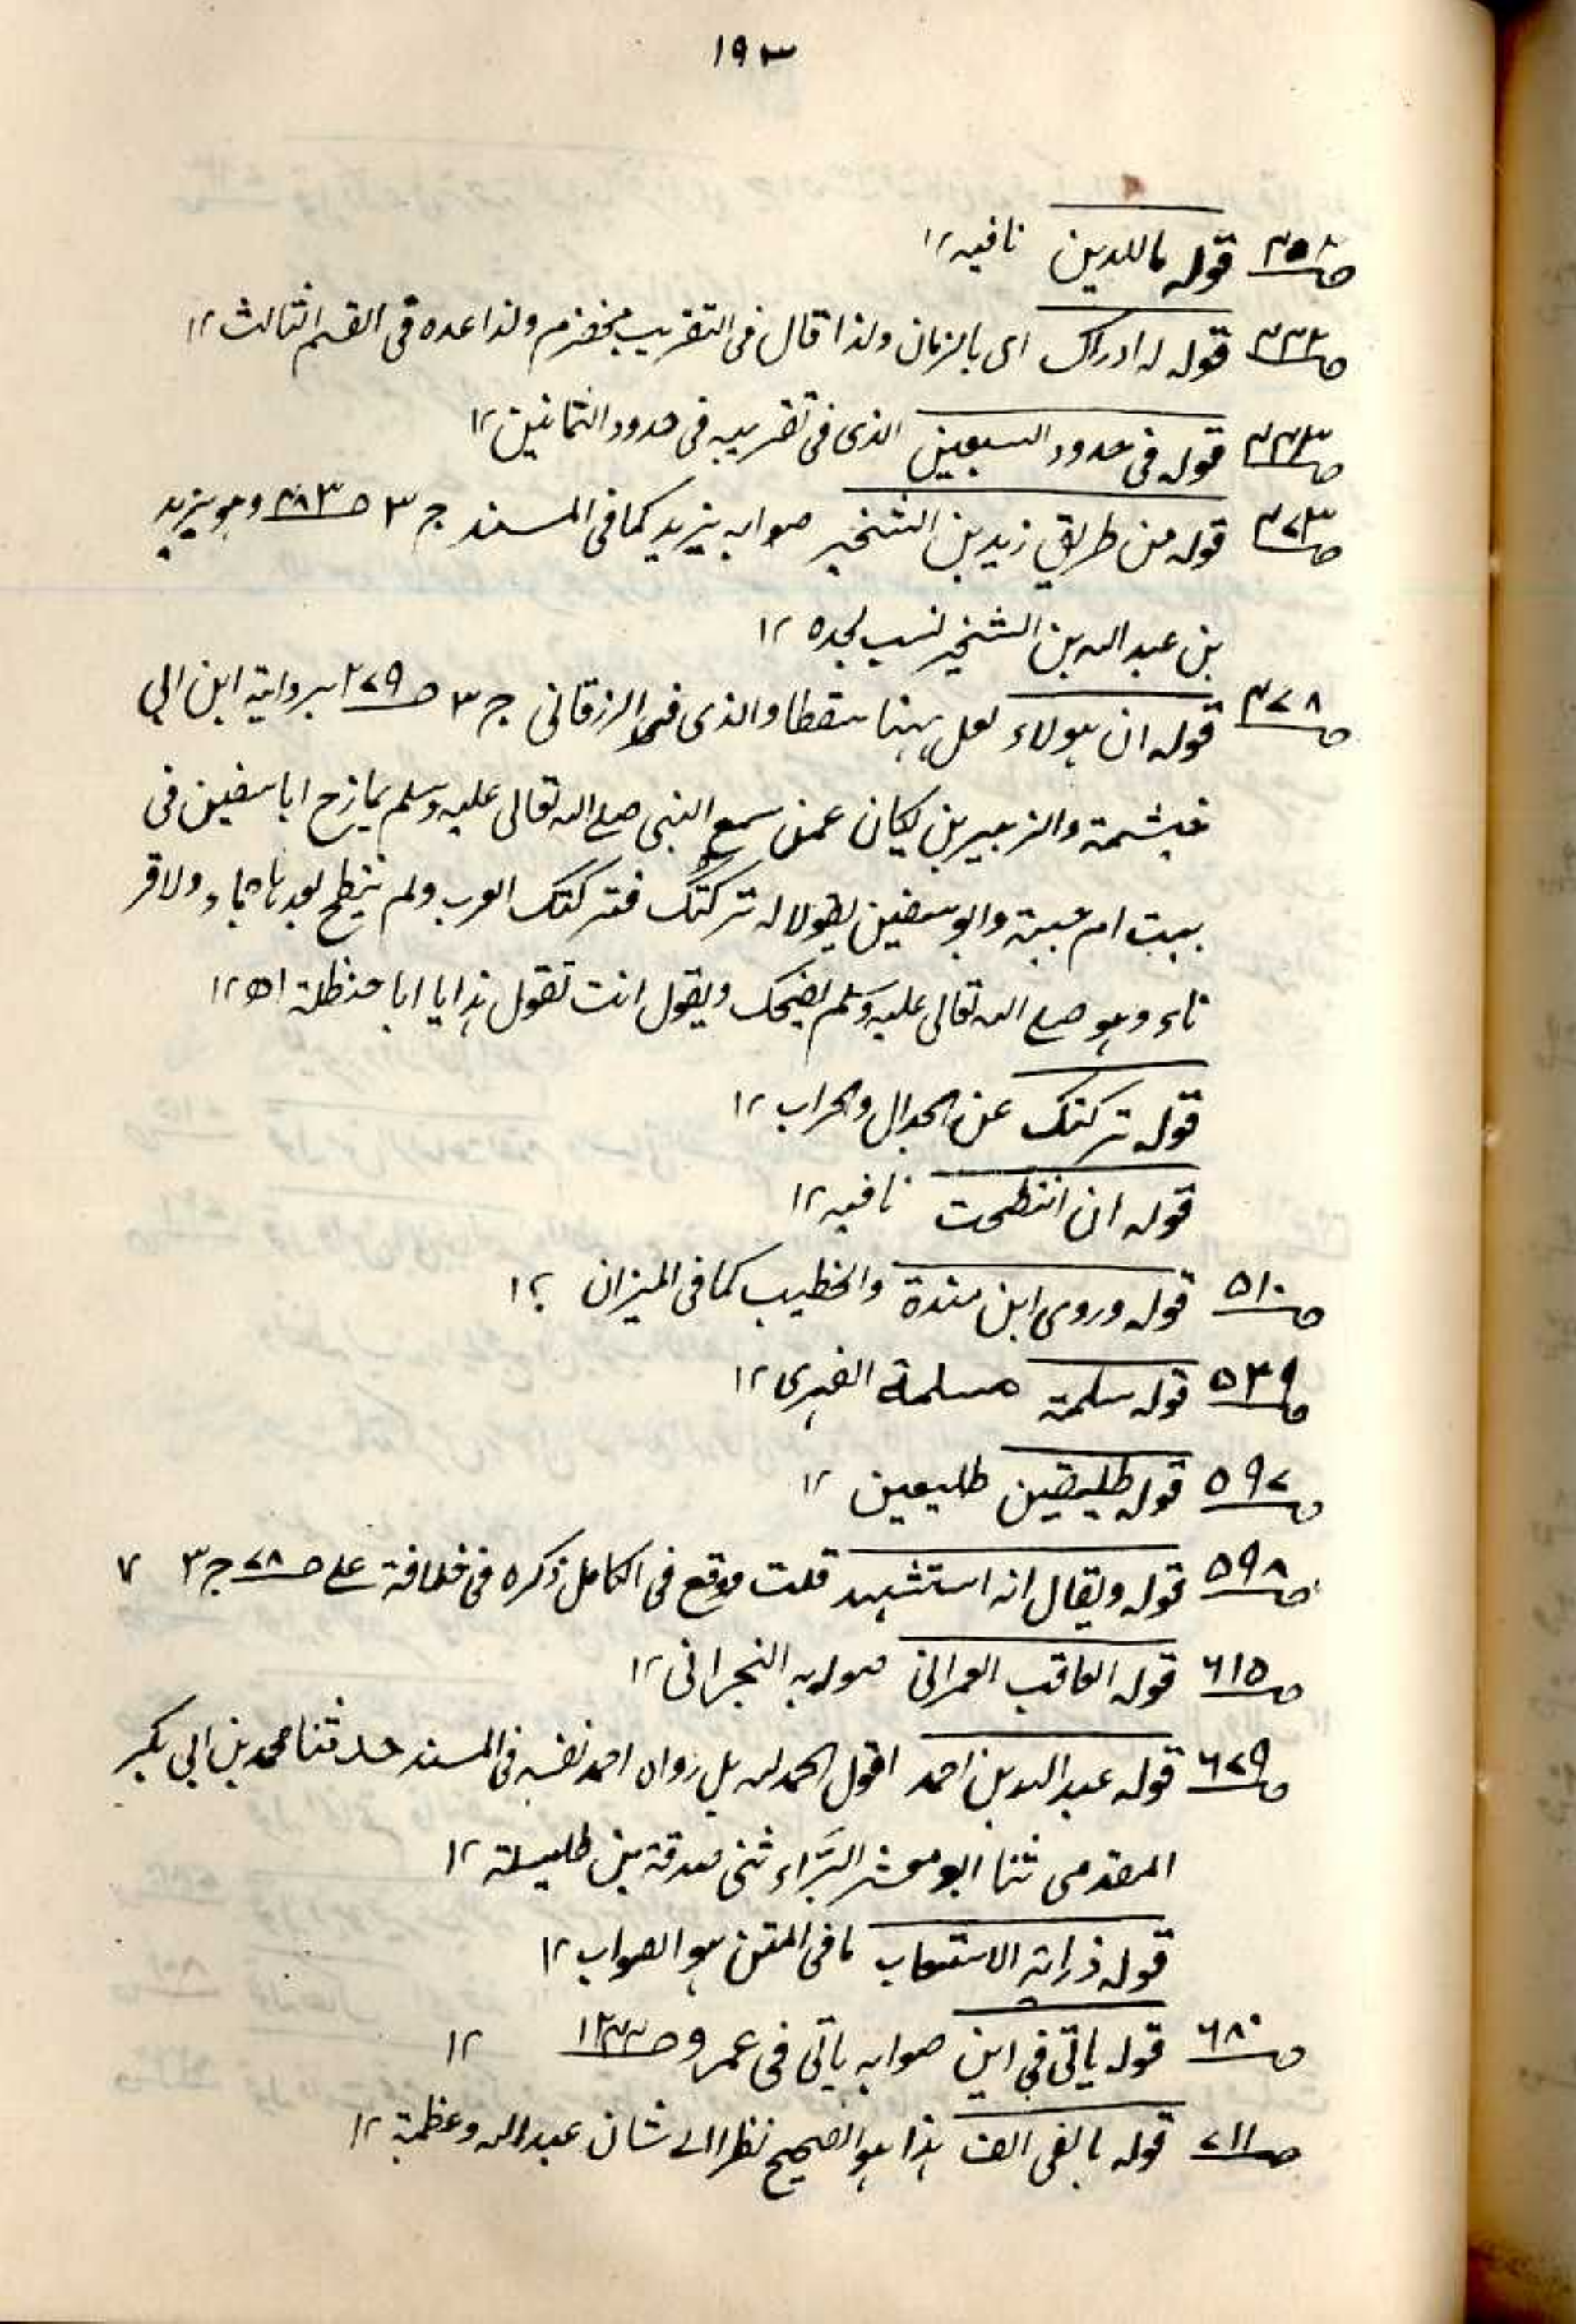 ١٩٣
قوله ماللدين نافيه ١٢
قوله له ادراك اى بالزمان ولذا قال فى التقريب مخضرم ولذا عده فى القسم الثالث ١٢
قوله فى حدود السبعين الذى فى تقريبه فى حدود الثمانين ١٢
قوله من طريق زيد بن الشخير صوابه يزيد كما فى المسند ج ٣ صـ ٤٨٣ وهو يزيد
بن عبد الله بن الشخير نسب لجده ١٢
صـ ٤٧٨ قوله ان هولاء لعل ههنا سقطا والذى فى الزرقانى ج ٣ صـ ٢٧٩ برواية ابن ابى
خيشمة والزبير بن بكار عمن سمع النبى صلے الله تعالى عليه وسلم يمازح ابا سفين فى
بيت ام حبيبة وابو سفين يقول له تركتك فتركتك العرب ولم تنتطح بعدها جماء ولا قر
ناء وهو صلے الله تعالى عليه وسلم يضحك ويقول انت تقول هذا يا ابا حنظلة اھ ١٢
قوله تركتك عن الجدال والحراب ١٢
قوله ان انتطحت نافيه ١٢
صـ ٥١٠ قوله وروى ابن مندة والخطيب كما فى الميزان ١٢
صـ ٥٣٩ قوله سلمة مسلمة الفهرى ١٢
صـ ٥٩٧ قوله طليقين طليعين ١٢
صـ ٥٩٨ قوله ويقال انه استشهد قلت وقع فى الكامل ذكره فى خلافة على صـ ٧٨ ج ٣
صـ ٦١٥ قوله العاقب العمرانى صوابه النجرانى ١٢
صـ ٦٧٩ قوله عبد الله بن احمد اقول الحمد لله بل رواه احمد نفسه فى المسند حدثنا محمد بن ابى بكر
المقدمى ثنا ابو معشر البَرّاء ثنى صدقة بن طيسلة ١٢
قوله الاستيعاب ما فى المتن هو الصواب ١٢
صـ ٦٨٠ قوله ياتى فى ابن صوابه ياتى فى عمرو صـ ١٢
صـ ٧١١ قوله بالفى الف هذا هو الصحيح نظرا الى شان عبد الله وعظمة ١٢